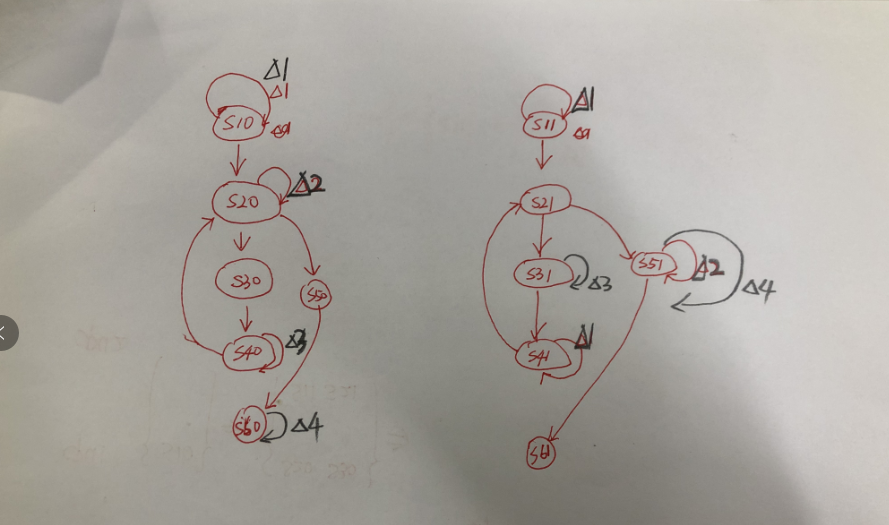 Δ1
Δ1
S10
S20
Δ2
S30
S50
S40
Δ3
S60
Δ4
Δ1
S11
S21
S31
Δ3
S51
Δ2
Δ4
S41
Δ1
S61